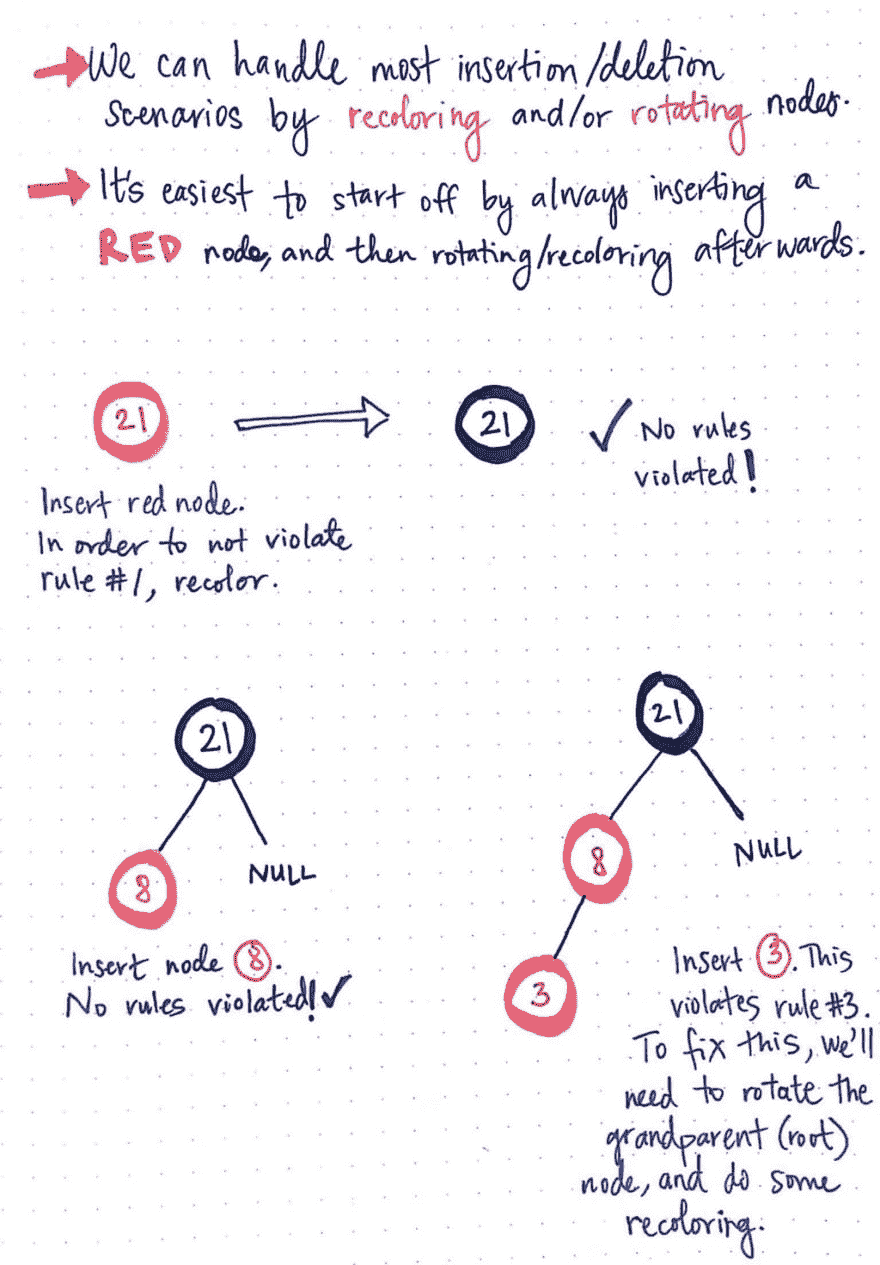 →We can handle most insertion/deletion
scenarios by recoloring and/or rotating nodes.
→ It's easiest to start off by always inserting a
RED node, and then rotating/recoloring afterwards.
21
21
✓ No rules
violated!
Insert red node.
In order to not violate
rule #1, recolor.
21
8
NULL
Insert node 8.
No rules violated!✓
21
8
NULL
3
Insert 3. This
violates rule #3.
To fix this, we'll
need to rotate the
grandparent (root)
node, and do some
recoloring.